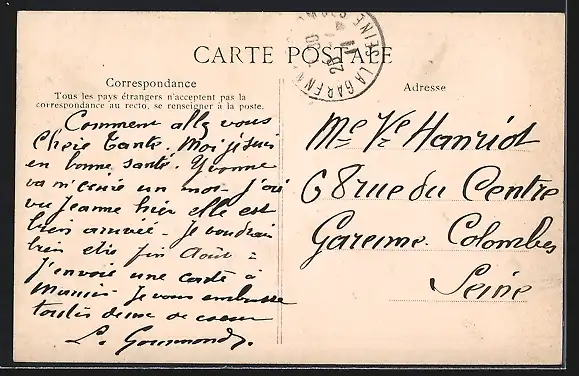 CARTE POSTALE
Correspondance
Tous les pays étrangers n'acceptent pas la
correspondance au recto, se renseigner à la poste.
Adresse
LA GARENNE SEINE
Comment allez vous
Chère Tante. Moi je suis
en bonne santé. Yvonne
va m'écrire un mot J'ai
vu Jeanne hier elle est
bien arrivée. Je voudrais
bien être fin Août
J'envoie une carte à
Je vous embrasse
toutes deux de coeur
L.
Me Ve Hanriot
68 rue du Centre
Garenne. Colombes
Seine